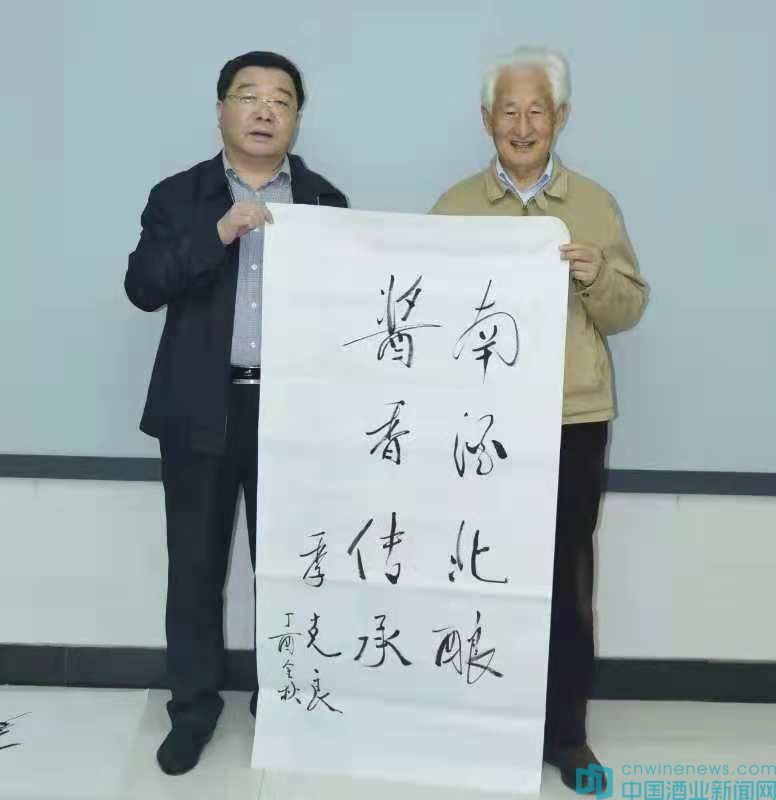 南酒北酿
醬香传承
季克良
丁酉金秋
cnwinenews.com
中国酒业新闻网